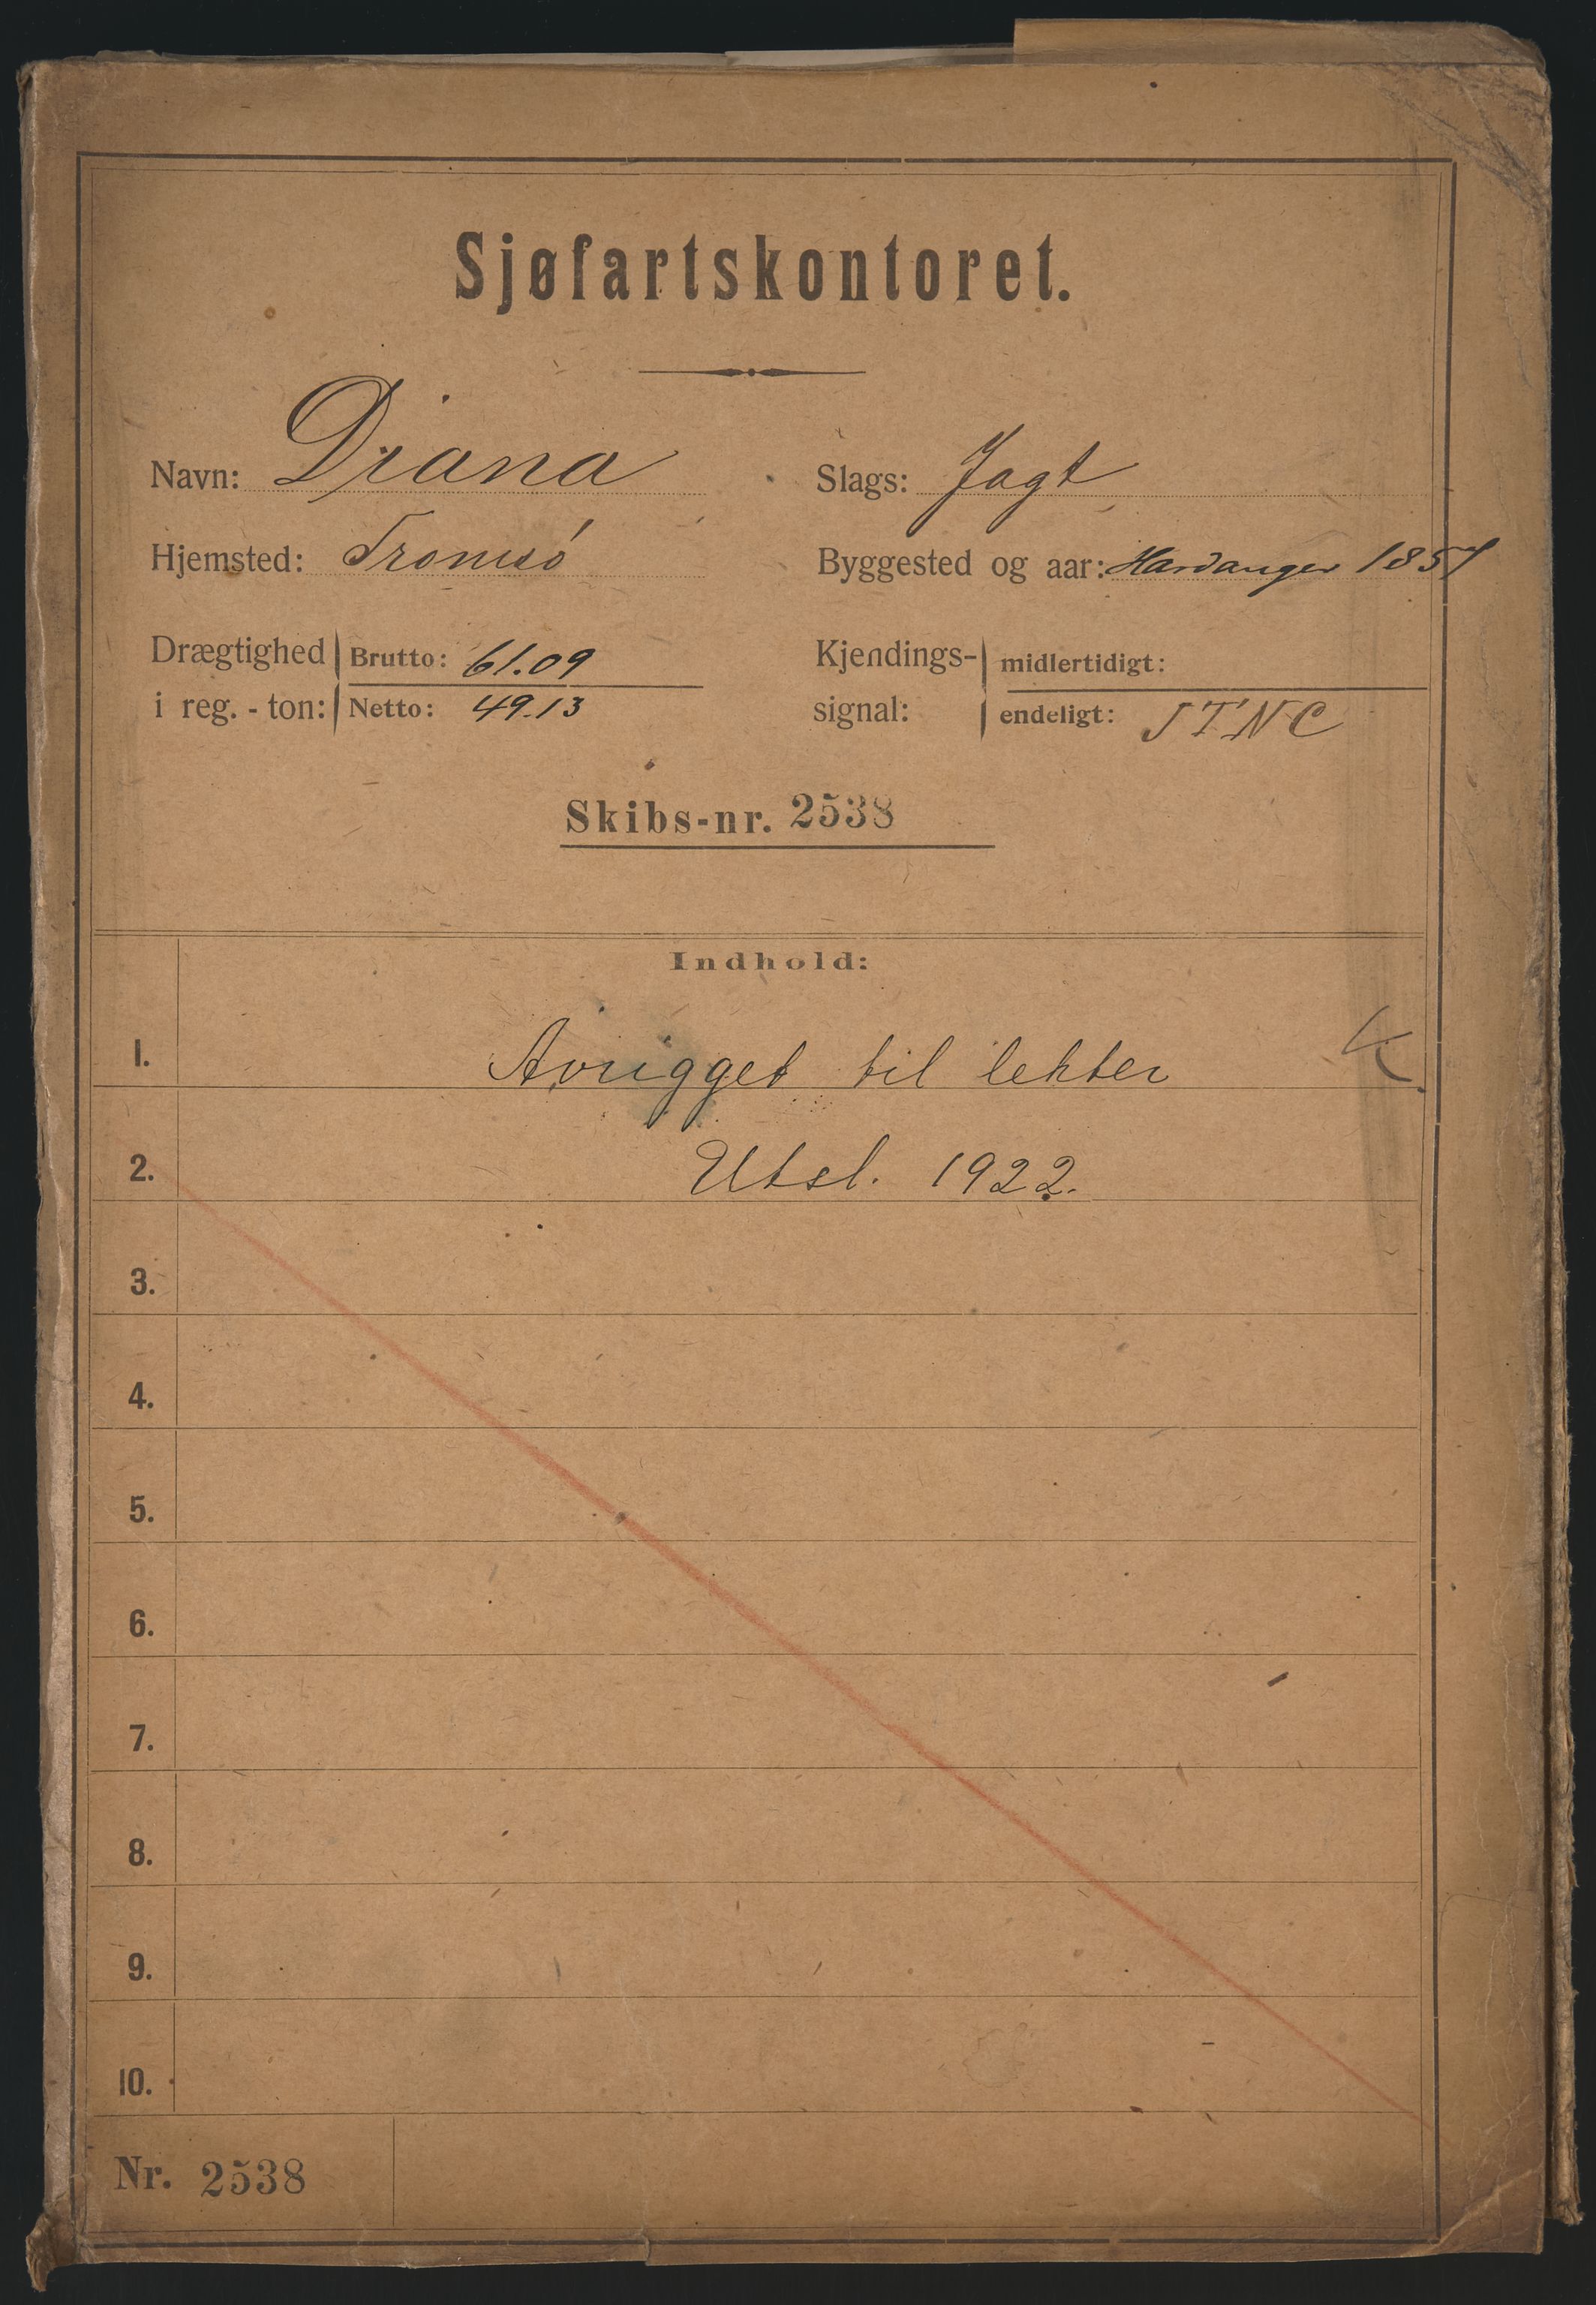 Sjøfartskontoret.
Navn: Diana Slags: Jagt
Hjemsted: Tromsö Byggested og aar: Hardanger 1857
Drægtighed Brutto: 61.09 Kjendings- midlertidigt:
i reg. - ton: Netto: 49.13 signal: endeligt: JTNC
Skibs-nr. 2538
Indhold:
1. Avrigget til lekter K
2. Utsl. 1922.
3.
4.
5.
6.
7.
8.
9.
10.
Nr. 2538